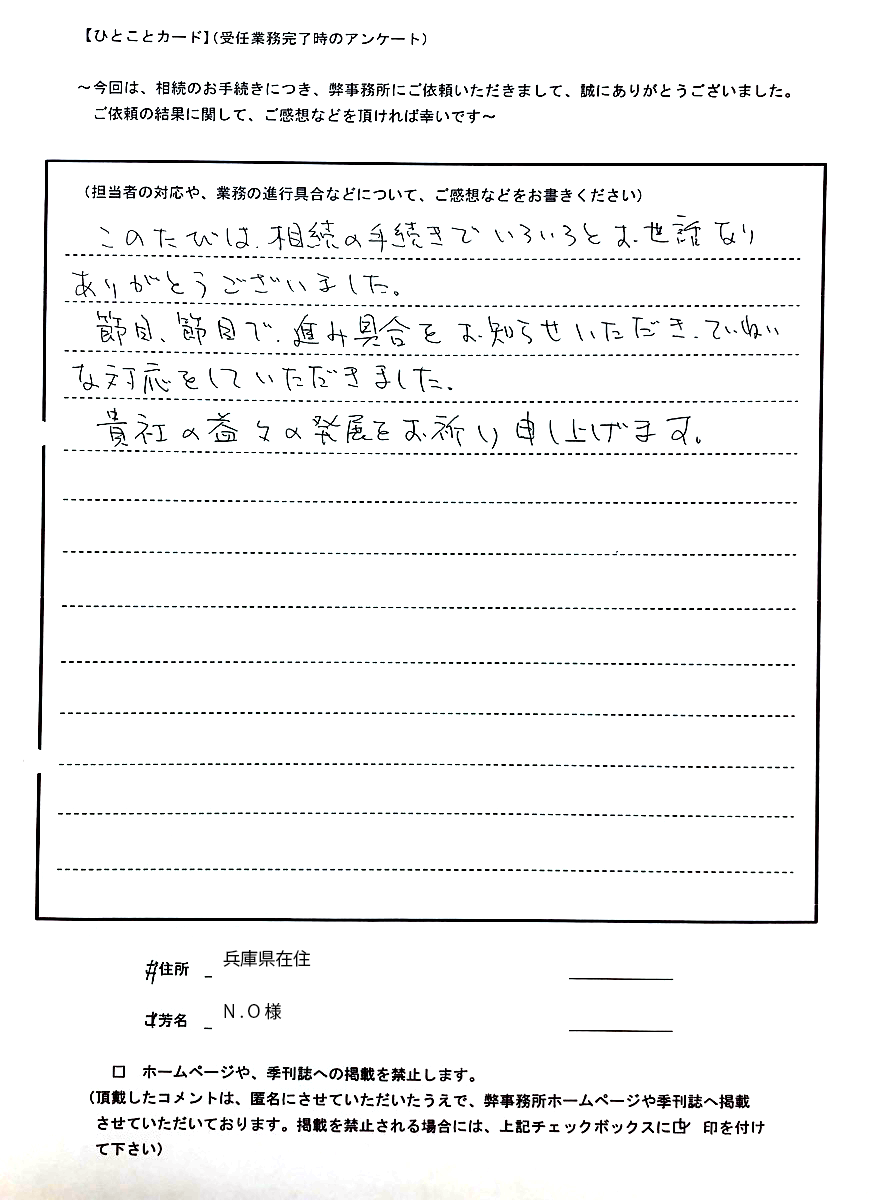 【ひとことカード】（受任業務完了時のアンケート）
～今回は、相続のお手続きにつき、弊事務所にご依頼いただきまして、誠にありがとうございました。
ご依頼の結果に関して、ご感想などを頂ければ幸いです～
（担当者の対応や、業務の進行具合などについて、ご感想などをお書きください）
このたびは、相続の手続きでいろいろとお世話なり
ありがとうございました。
節目、節目で、進み具合をお知らせいただき、ていねい
な対応をしていただきました。
貴社の益々の発展をお祈り申し上げます。
住所 兵庫県在住
ご芳名 N.O様
□ ホームページや、季刊誌への掲載を禁止します。
（頂戴したコメントは、匿名にさせていただいたうえで、弊事務所ホームページや季刊誌へ掲載
させていただいております。掲載を禁止される場合には、上記チェックボックスに☑ 印を付け
て下さい）